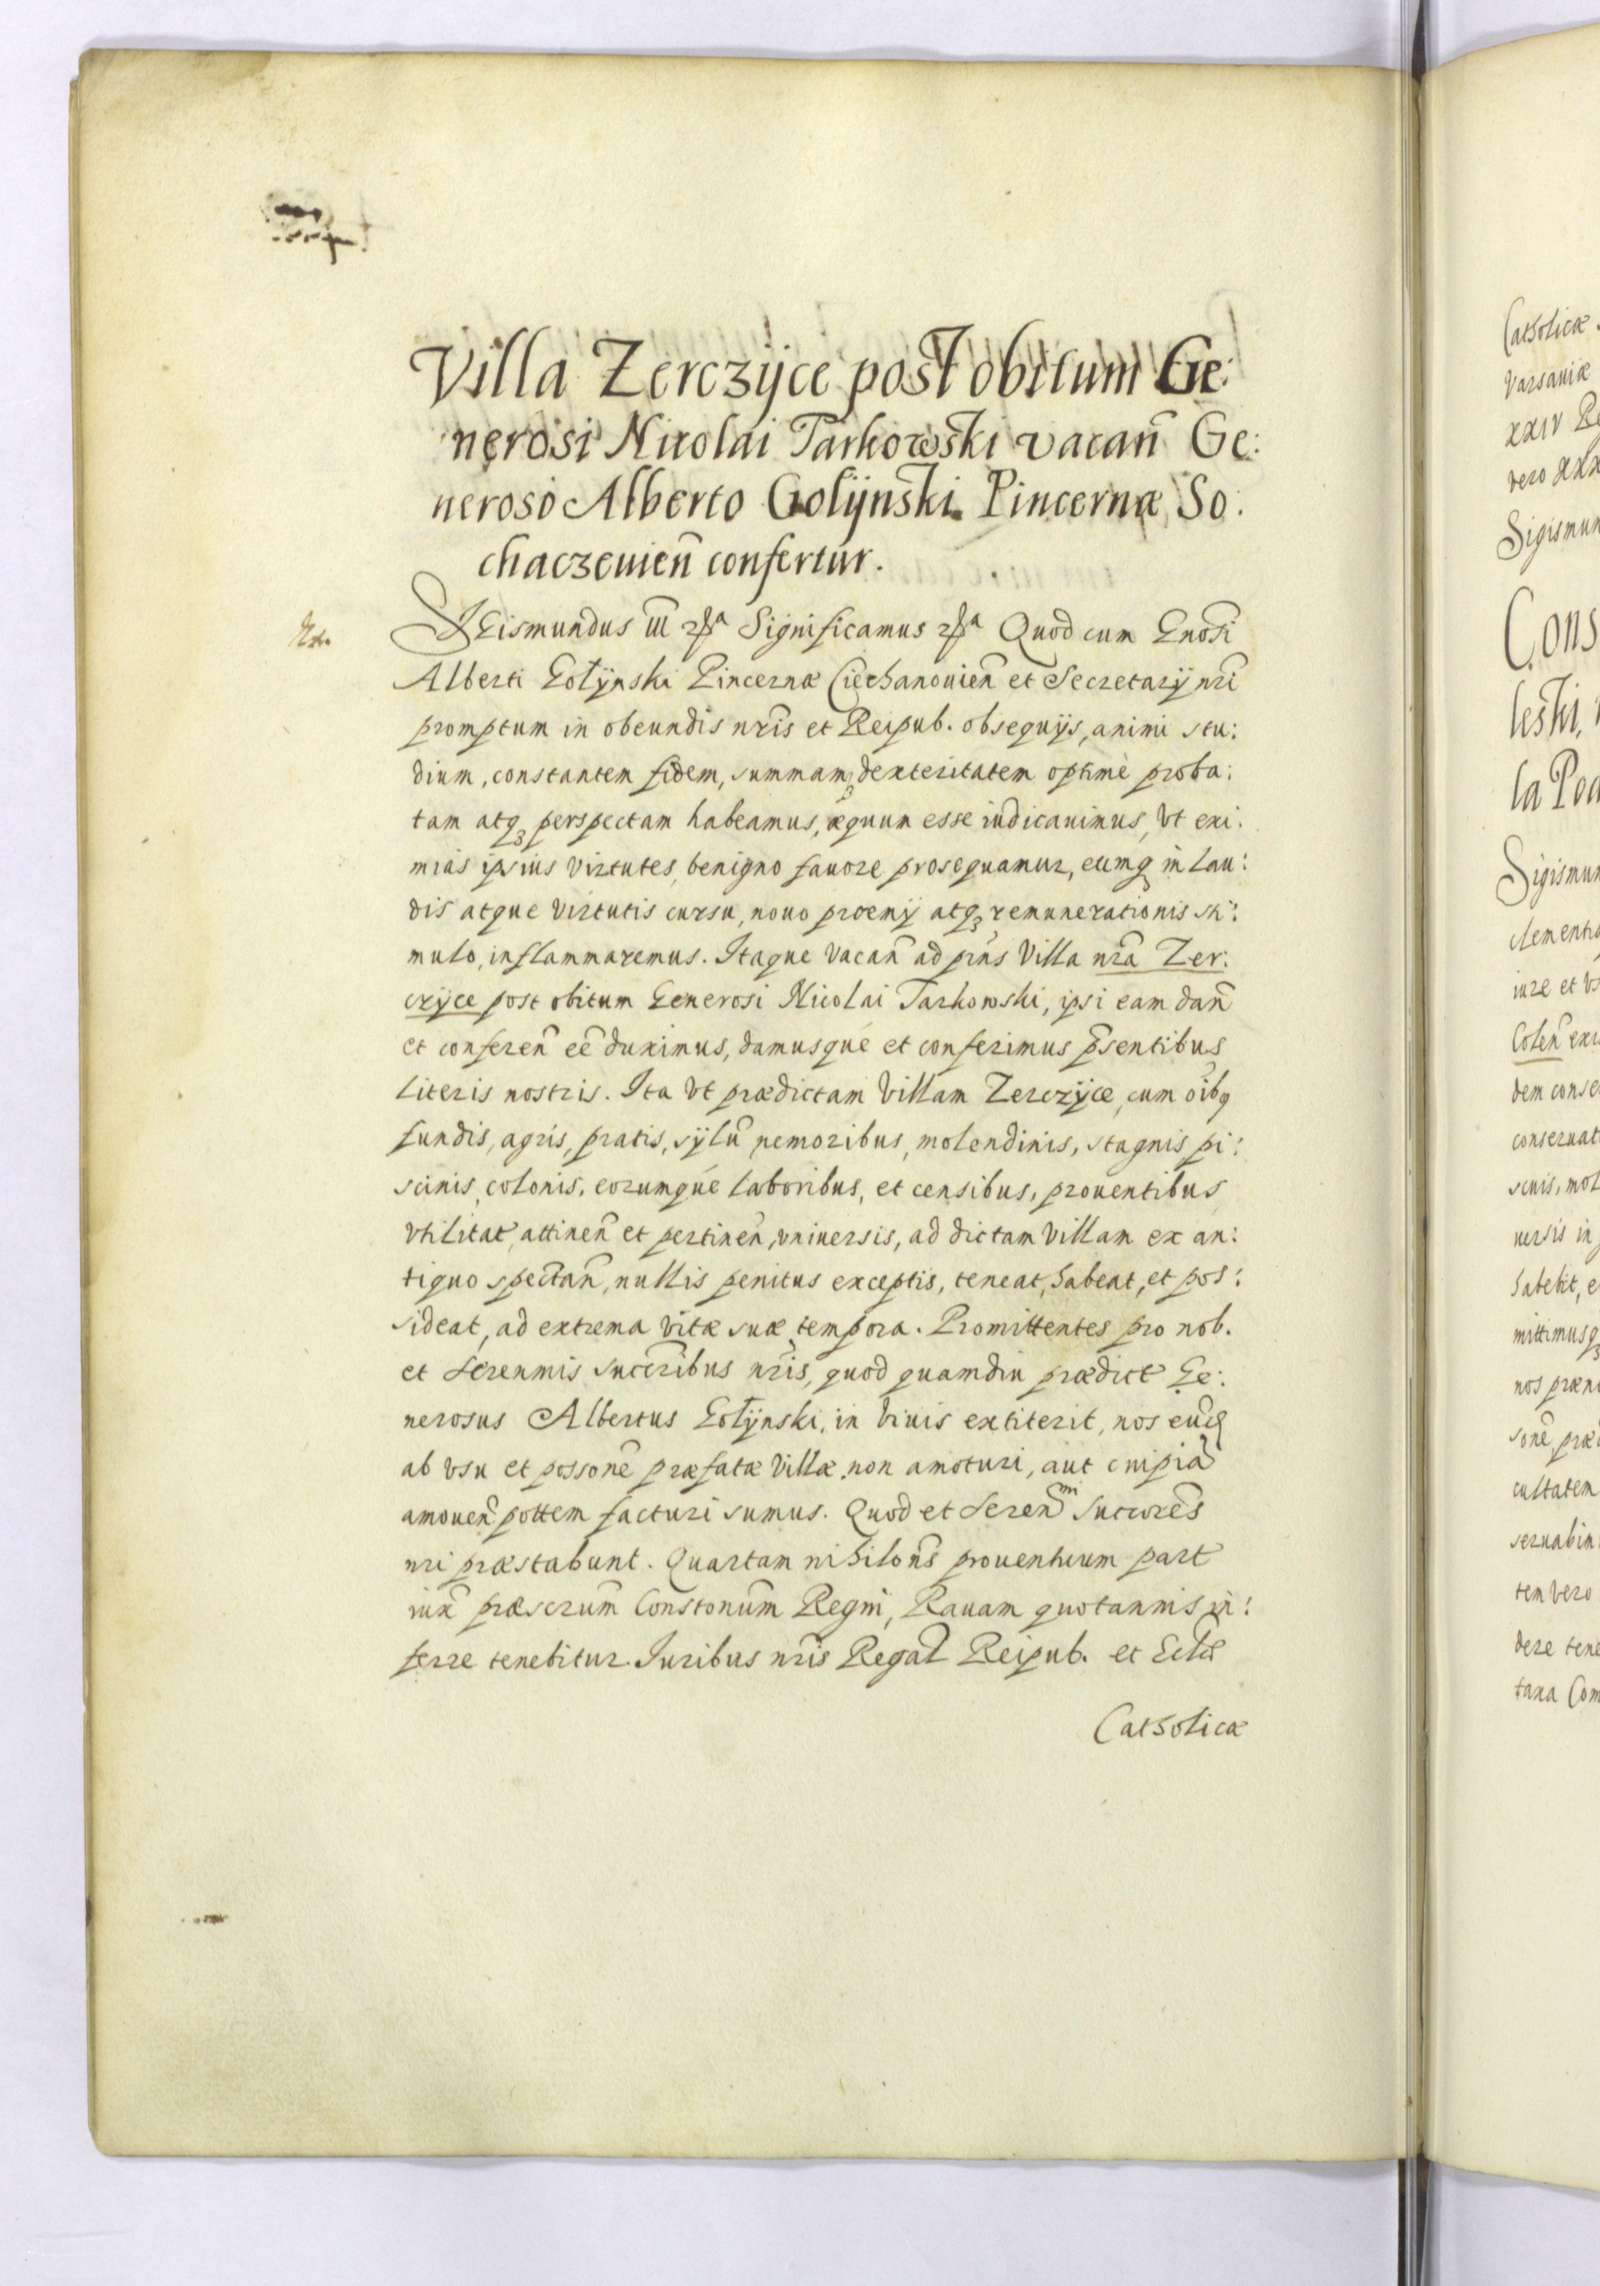 Villa Zerczÿce post obitum Ge:
nerosi Nicolai Tarkowski vacan̄ Ge:
neroso Alberto Golijnski Pincernæ So:
chaczeuien̄ confertur.
Sigismundus III Significamus Quod cum Gnōsi
Alberti Gołÿnski Pincernæ Ciechanouien̄ et Secretarÿ nr̄i
promptum in obeundis nr̄is et Reipub. obsequÿs, animi stu:
dium, constantem fidem, summam dexteritatem optimè proba:
tam atq₃ perspectam habeamus, æquum esse iudicauimus, vt exi:
mias ipsius virtutes, benigno fauore prosequamur, eumq in lau:
dis atque virtutis cursu, nouo præmÿ atq₃ remunerationis sti:
mulo, inflammaremus. Itaque vacan̄ ad pr̄ns Villa nr̄a Zer:
czÿce post obitum Generosi Nicolai Tarkowski, ipsi eam dan̄
et conferen̄ eē duximus, damusqué et conferimus p̄sentibus
literis nostris. Ita vt prædictam Villam Zerczÿce, cum oībq
fundis, agris, pratis, sÿlū nemoribus, molendinis, stagnis pi:
scinis, colonis, eorumqué laboribus, et censibus, prouentibus
vtilitat, attinen̄ et pertinen̄, vniuersis, ad dictam Villam ex an:
tiquo spectan̄, nullis penitus exceptis, teneat, habeat, et pos:
sideat, ad extrema vitæ suæ tempora. Promittentes pro nob.
et Serenmis succribus nr̄is, quod quamdiu prædict Ge:
nerosus Albertus Gołÿnski, in viuis extiterit, nos eum̄
ab vsu et possonē præfatæ Villæ non amoturi, aut cuipiā
amouen̄ pottem facturi sumus. Quod et Seren̄ᵐ Succorēs
nri præstabunt. Quartam nihilon̄s prouentuum part
iux̄ præscrum̄ Constonum̄ Regni, Rauam quotannis in:
ferre tenebitur. Juribus nr̄is Regal Reipub. et Ecl̄æ
Catholicæ
Catholicæ
Varsauiæ
XXIV Re
vero XXX
Sigismun
Cons
leski,
la Pod
Sigismun
clementia
iure et vs
Colen̄ exi
dem conse
conseruat
scinis, mol
uersis in
habebit, e
mittimusq₃
nos præn
sonē præ
cultatem
seruabim
tem vero
dere tene
taxa Com